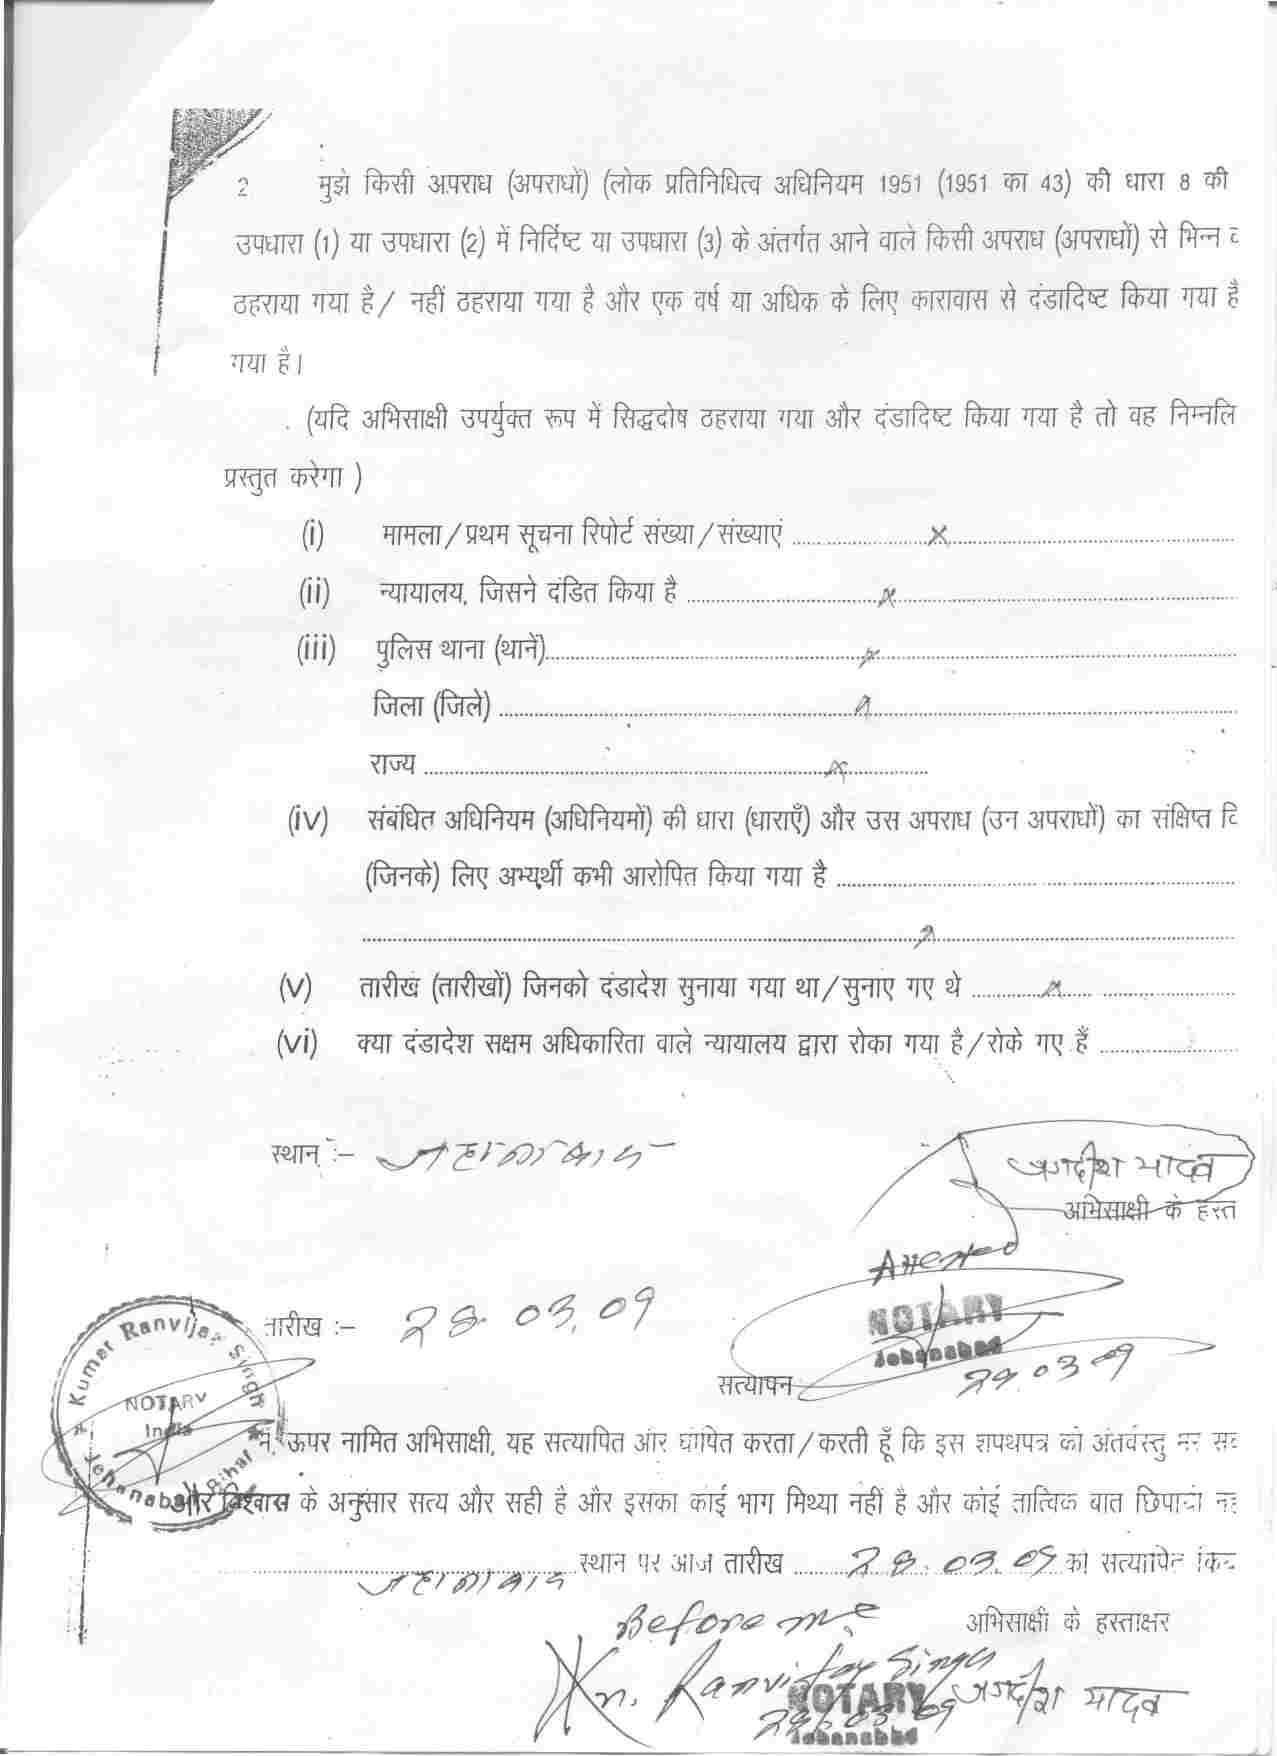 2 मुझे किसी अपराध (अपराधों) (लोक प्रतिनिधित्व अधिनियम 1951 (1951 का 43) की धारा 8 की
उपधारा (1) या उपधारा (2) में निर्दिष्ट या उपधारा (3) के अंतर्गत आने वाले किसी अपराध (अपराधों) से भिन्न
ठहराया गया है / नहीं ठहराया गया है और एक वर्ष या अधिक के लिए कारावास से दंडादिष्ट किया गया है
गया है।
(यदि अभिसाक्षी उपर्युक्त रूप में सिद्धदोष ठहराया गया और दंडादिष्ट किया गया है तो वह निम्नलि
प्रस्तुत करेगा )
(i) मामला / प्रथम सूचना रिपोर्ट संख्या / संख्याएं ........ x ........
(ii) न्यायालय, जिसने दंडित किया है ........ x ........
(iii) पुलिस थाना (थानें)........ x ........
जिला (जिले) ........ x ........
राज्य ........ x ........
(iv) संबंधित अधिनियम (अधिनियमों) की धारा (धाराएँ) और उस अपराध (उन अपराधों) का संक्षिप्त वि
(जिनके) लिए अभ्यर्थी कभी आरोपित किया गया है ................
........ x ........
(v) तारीख (तारीखों) जिनको दंडादेश सुनाया गया था / सुनाए गए थे ........ x ........
(vi) क्या दंडादेश सक्षम अधिकारिता वाले न्यायालय द्वारा रोका गया है / रोके गए हैं ................
स्थान :– जहानाबाद
जगदीश यादव
अभिसाक्षी के हस्त
Attested
तारीख :– 28.03.09
NOTARY
Jehanabad
28.03.09
Kumar Ranvijay Singh
NOTARY
India
Jehanabad Bihar
सत्यापन
मैं, ऊपर नामित अभिसाक्षी, यह सत्यापित और घोषित करता / करती हूँ कि इस शपथपत्र की अंतर्वस्तु मेरे सर्व
और विश्वास के अनुसार सत्य और सही है और इसका कोई भाग मिथ्या नहीं है और कोई तात्विक बात छिपायी नह
जहानाबाद स्थान पर आज तारीख 28.03.09 को सत्यापित किय
Before me
अभिसाक्षी के हस्ताक्षर
Kr. Ranvijay Singh
जगदीश यादव
NOTARY
28/03/09
Jehanabad